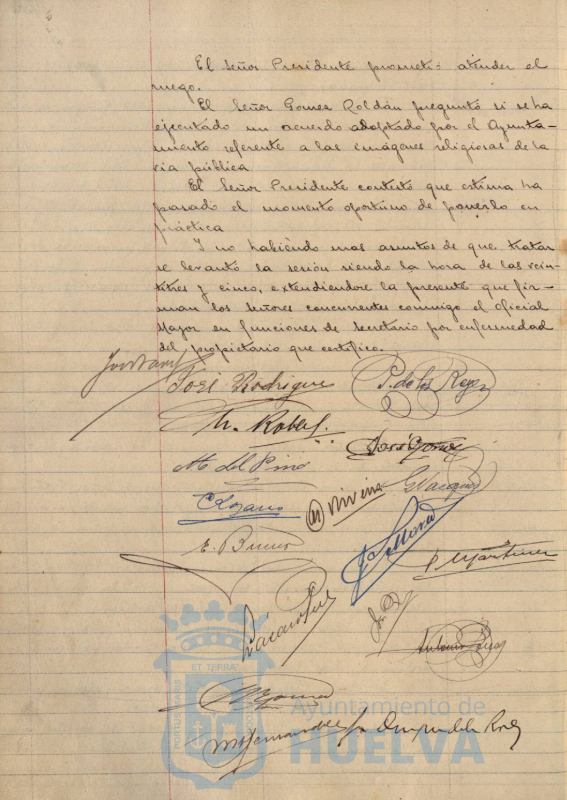 El Señor Presidente prometió atender el
ruego.
El Señor Gomez Roldán preguntó si se ha
ejecutado un acuerdo adoptado por el Ayunta-
miento referente a las imágenes religiosas de la
via pública
El Señor Presidente contestó que estima ha
pasado el momento oportuno de ponerlo en
práctica
Y no habiendo mas asuntos de que tratar
se levantó la sesión siendo la hora de las vein-
titres y cinco, extendiendose la presente que fir-
man los señores concurrentes conmigo el Oficial
Mayor en funciones de Secretario por enfermedad
del propietario que certifico.
José Rodrigue
P. de los Reyes
José Gomez
M. del Pino
G. Vazquez
E. Bueno
P. Martinez
ET TERRAE
PORTUS MARIS
Ayuntamiento de
HUELVA